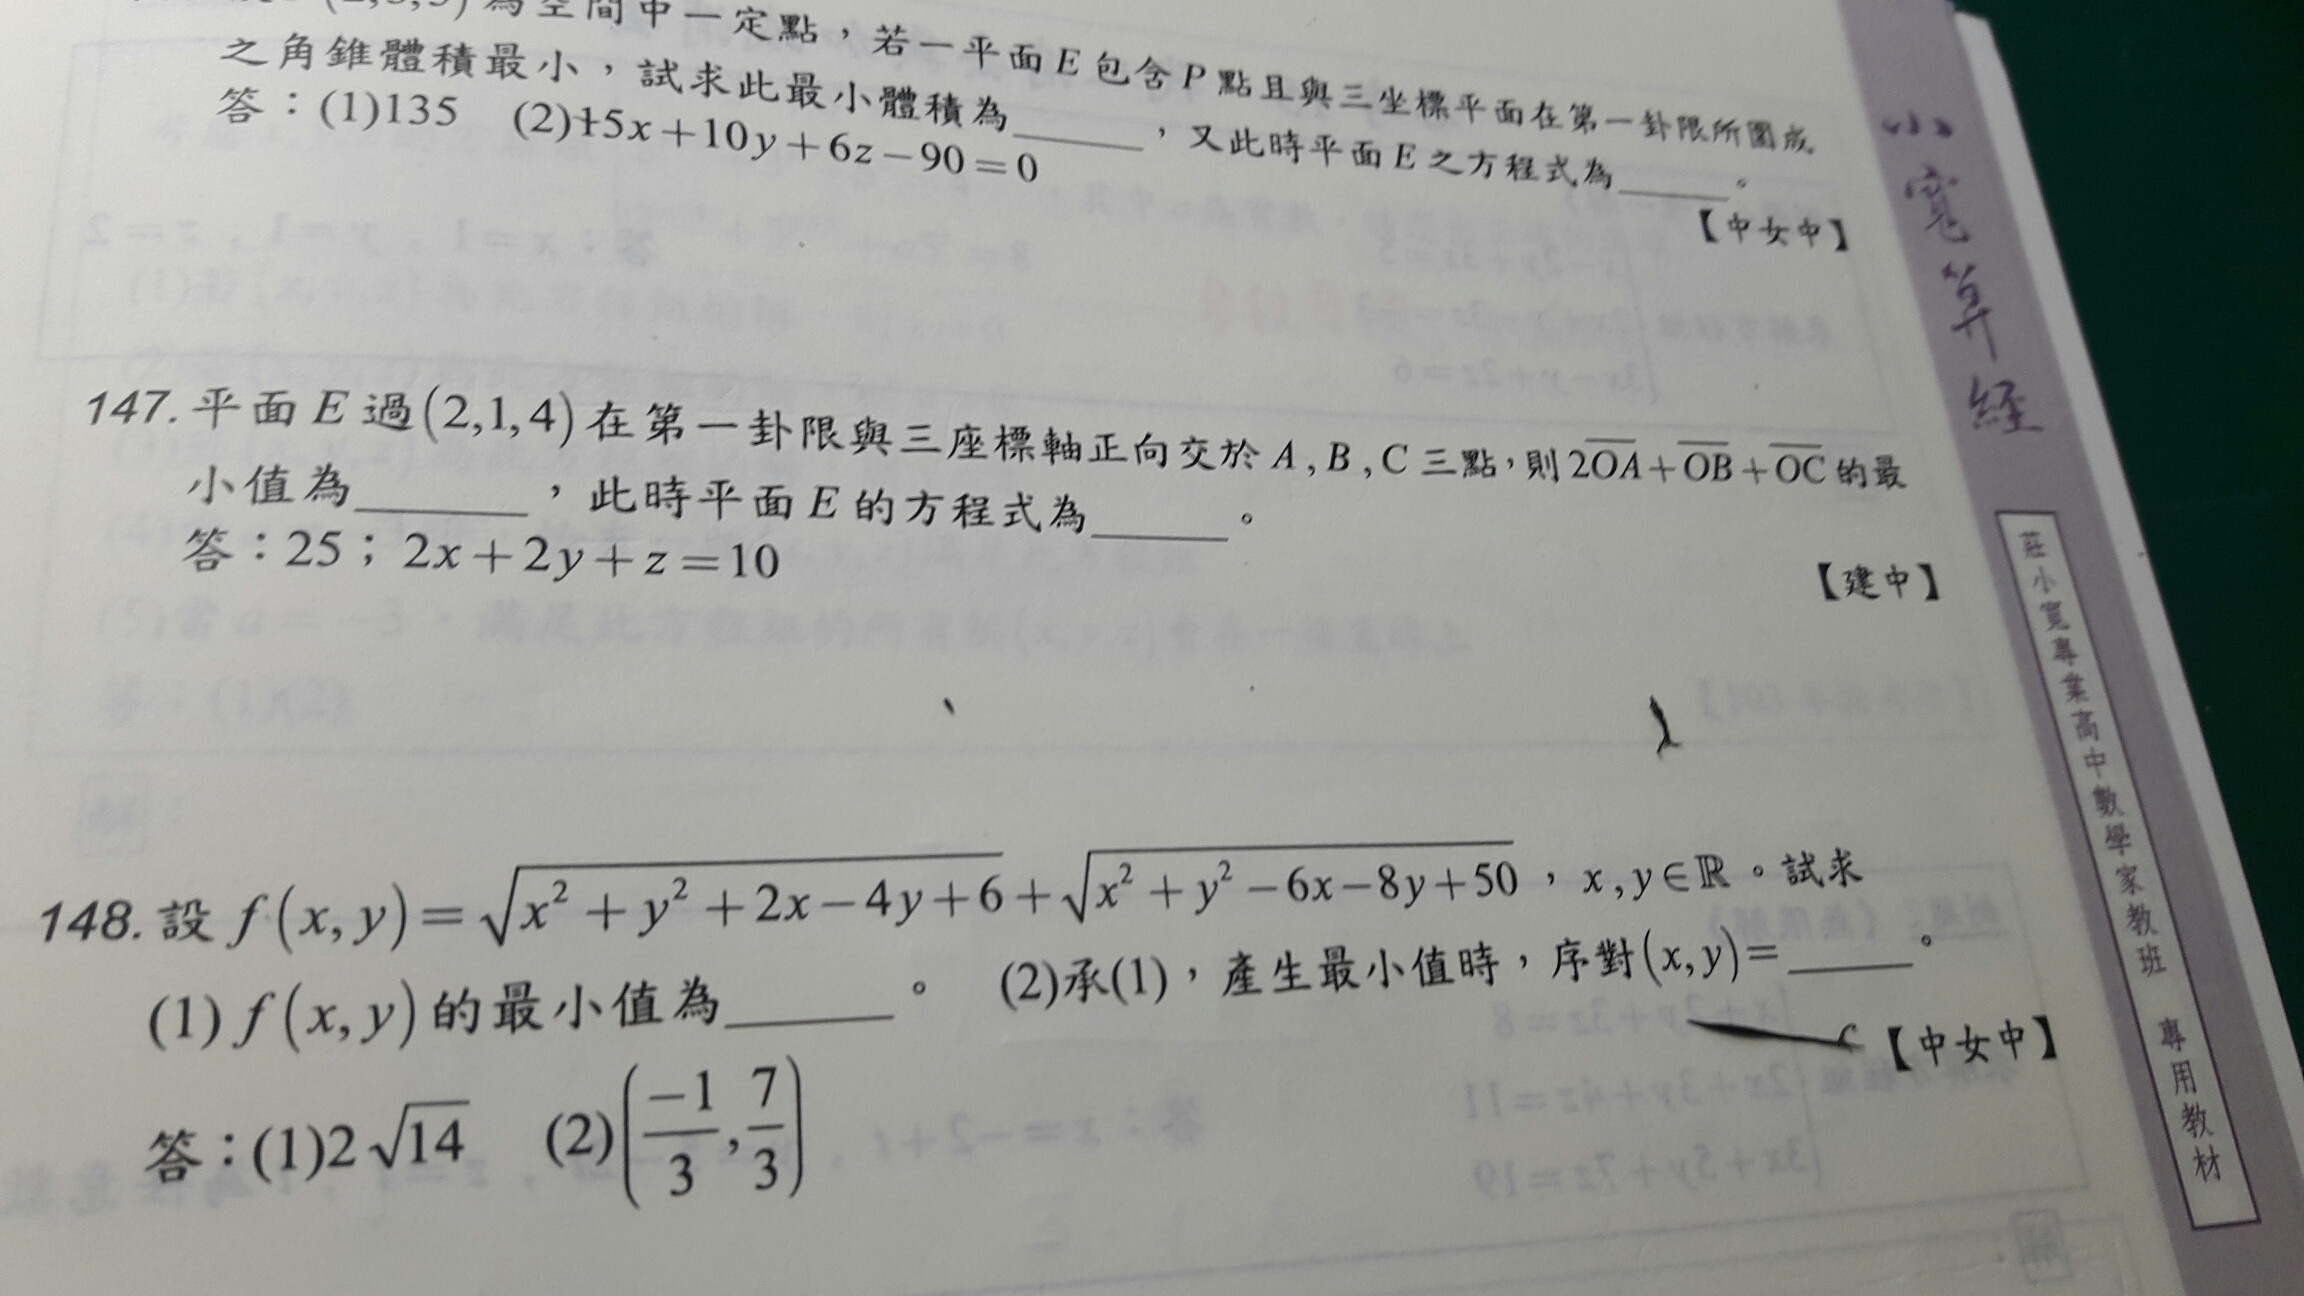 (2,3,5)為空間中一定點，若一平面E包含P點且與三坐標平面在第一卦限所圍成
之角錐體積最小，試求此最小體積為______，又此時平面E之方程式為______。
答：(1)135 (2)15x+10y+6z−90=0
【中女中】
147. 平面E過(2,1,4)在第一卦限與三座標軸正向交於A,B,C三點，則2OA+OB+OC的最
小值為______，此時平面E的方程式為______。
答：25；2x+2y+z=10
【建中】
148. 設f(x,y)=√(x²+y²+2x−4y+6)+√(x²+y²−6x−8y+50)，x,y∈ℝ。試求
(1)f(x,y)的最小值為______。 (2)承(1)，產生最小值時，序對(x,y)=______。
【中女中】
答：(1)2√14 (2)(−1/3,7/3)
小寬算經
莊小寬專業高中數學家教班 專用教材